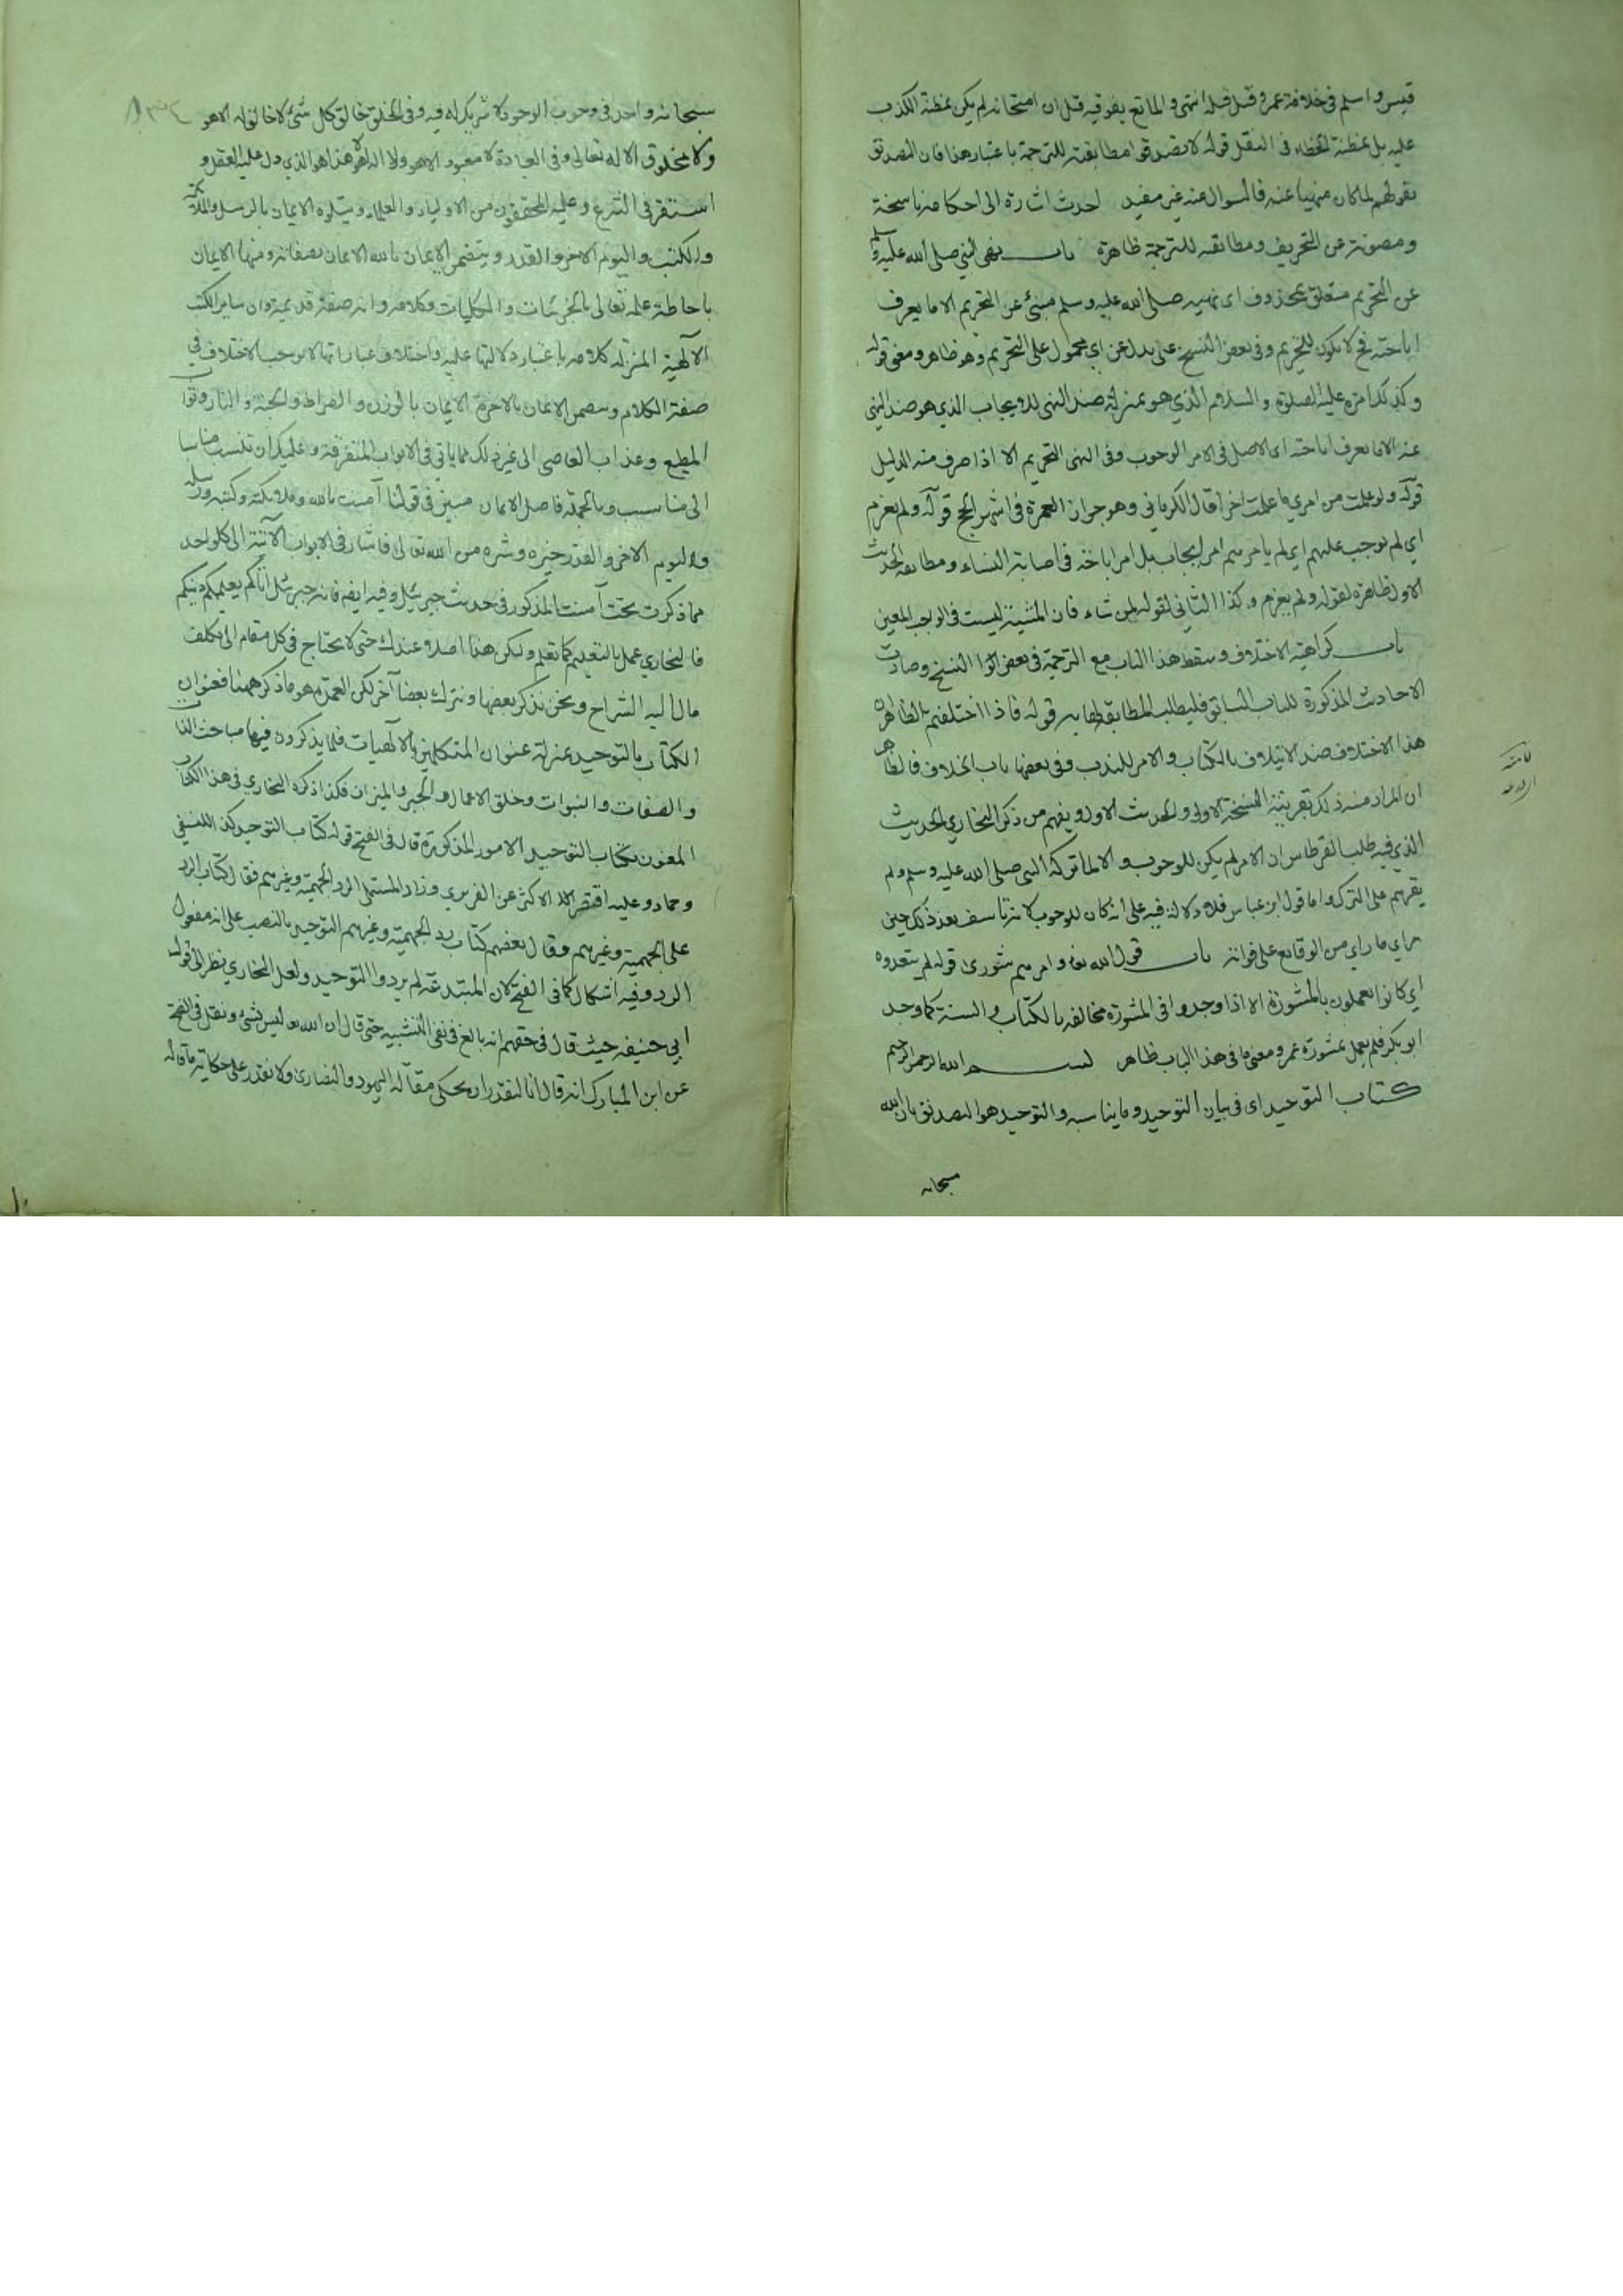 قيس واسلم في خلافة عمر وقيل قبله انتهى والمانع يفوقيه قيل ان امتحانه لم يكن بمظنة الكذب
عليه بل بمظنة الخطاء في النقل قوله لا تصدقوا مطابقته للترجمة باعتبار هذا فان التصديق
بقولهم لما كان منهيا عنه فالسوال عنه غير مفيد احدث اشارة الى احكامه ناسخة
ومصونة عن التحريف ومطابقه للترجمة ظاهرة باب نهى النبي صلى الله عليه وسلم
عن التحريم متعلق بمحذوف اى نهيه صلى الله عليه وسلم مبنئ عن التحريم الا ما يعرف
اباحته فح لا يكون للتحريم وفي بعض النسخ على بدل عن اي محمول على التحريم وهو ظاهر ومعنى قوله
وكذلك امره عليه الصلوة والسلام الذي هو بمنزلة ضد النهى للايجاب الذي هو ضد النهى
عنه الا ما يعرف اباحته اى الاصل في الامر الوجوب وفي النهى التحريم الا اذا صرف منه الدليل
قوله ولو علمت من امري ما علمت اخرا قال الكرماني وهو جواز العمرة في اشهر الحج قوله ولم يعزم
اي لم يوجب عليهم اي لم يامرهم امر ايجاب بل امر اباحة في اصابة النساء ومطابقة الحديث
الاول ظاهرة لقوله ولم يعزم وكذا الثاني لقوله لمن شاء فان المشيئة ليست في الواجب المعين
باب كراهية الاختلاف وسقط هذا الباب مع الترجمة في بعض النسخ وصارت
الاحاديث المذكورة للباب السابق فليطلب المطابقة به قوله فاذا اختلفتم الظاهر ان
هذا الاختلاف ضد الايتلاف بالكتاب والامر للندب وفي بعضها باب الخلاف فالظاهر
ان المراد منه ذلك بقرينة النسخة الاولى والحديث الاول ويفهم من ذكر البخاري الحديث
الذي فيه طلب القرطاس ان الامر لم يكن للوجوب والا لما تركه النبي صلى الله عليه وسلم ولم
يقرهم على الترك واما قول ابن عباس فلا دلالة فيه على انه كان للوجوب لانه تاسف بعد ذلك حين
راى ما راى من الوقايع على فواته باب قول الله تعالى وامرهم شورى قوله لم يتعدوه
اي كانوا يعملون بالمشورة الا اذا وجدوا في المشورة مخالفه بالكتاب والسنة كما وجد
ابو بكر فلم يعمل بمشورة عمر ومعنى ما في هذا الباب ظاهر بسم الله الرحمن الرحيم
كتاب التوحيد اى في بيان التوحيد وما يناسبه والتوحيد هو التصديق بان الله
سبحانه
سبحانه واحد في وجوب الوجود لا شريك له فيه وفي الخلق خالق كل شئ لا خالق له الا هو
ولا مخلوق الا له تعالى وفي العبادة لا معبود الا هو ولا اله الا هو هذا هو الذي دل عليه العقل و
استقر في الشرع وعليه المحققون من الاولياء والعلماء ويتلوه الايمان بالرسل والملائكة
والكتب واليوم الاخر والقدر ويتضمن الايمان بالله الايمان بصفاته ومنها الايمان
باحاطة علمه تعالى بالجزئيات والكليات وكلامه وانه صفة قديمة وان ساير الكتب
الالهية المنزلة كلامه باعتبار دلالتها عليه واختلاف عباراتها لا يوجب الاختلاف في
صفة الكلام ويتضمن الايمان بالاخرة الايمان بالوزن والصراط والجنة والنار وثواب
المطيع وعذاب العاصي الى غير ذلك مما ياتي في الابواب المتفرقة وعليك ان تنسب مناسبا
الى مناسب وبالجملة فاصل الايمان مبين في قولنا آمنت بالله وملائكته وكتبه ورسله
واليوم الاخر والقدر خيره وشره من الله تعالى فاشار في الابواب الآتية الى كل واحد
مما ذكرت تحت آمنت المذكور في حديث جبرئيل وفيه ايضا فانه جبرئيل اتاكم يعلمكم دينكم
فالبخاري عمل بالتعليم كما تعلم وليكن هذا اصلا عندك حتى لا تحتاج في كل مقام الى تكلف
مال اليه الشراح ونحن نذكر بعضها ونترك بعضا آخر لكن العمدة هو ما ذكر ههنا فعنوان
الكتاب بالتوحيد بمنزلة عنوان المتكلمين بالالهيات فلما يذكرون فيها مباحث الذات
والصفات والنبوات وخلق الاعمال والجبر والميزان فكذا ذكره البخاري في هذا الكتاب
المعنون بكتاب التوحيد الامور المذكورة قال في الفتح قوله كتاب التوحيد كذا للنسفي
وحماد وعليه اقتصر الاكثر عن الفربري وزاد المستملي الرد الجهمية وغيرهم فقال كتاب الرد
على الجهمية وغيرهم وقال بعضهم كتاب رد الجهمية وغيرهم التوحيد بالنصب على انه مفعول
الرد وفيه اشكال كما في الفتح لان المبتدعة لم يردوا التوحيد ولعل البخاري نظر الى قول
ابي حنيفه حيث قال في حقهم انه بالغ في نفي التشبيه حتى قال ان الله تعالى ليس بشئ ونقل في الفتح
عن ابن المبارك انه قال انا لنقدر ان نحكى مقالة اليهود والنصارى ولا نقدر على حكاية مقاله